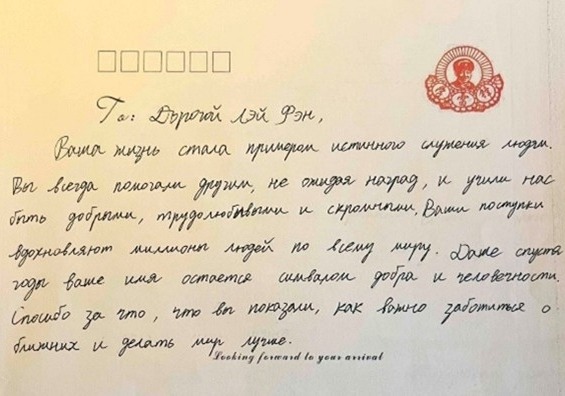 To: Дорогой Лэй Фэн,
Ваша жизнь стала примером истинного служения людям.
Вы всегда помогали другим, не ожидая наград, и учили нас
быть добрыми, трудолюбывыми и скромными. Ваши поступки
вдохновляют миллионы людей по всему миру. Даже спустя
годы ваше имя остается символом добра и человечности.
Спосибо за что, что вы показали, как важно заботиться о
ближних и делать мир лучше.
Looking forward to your arrival